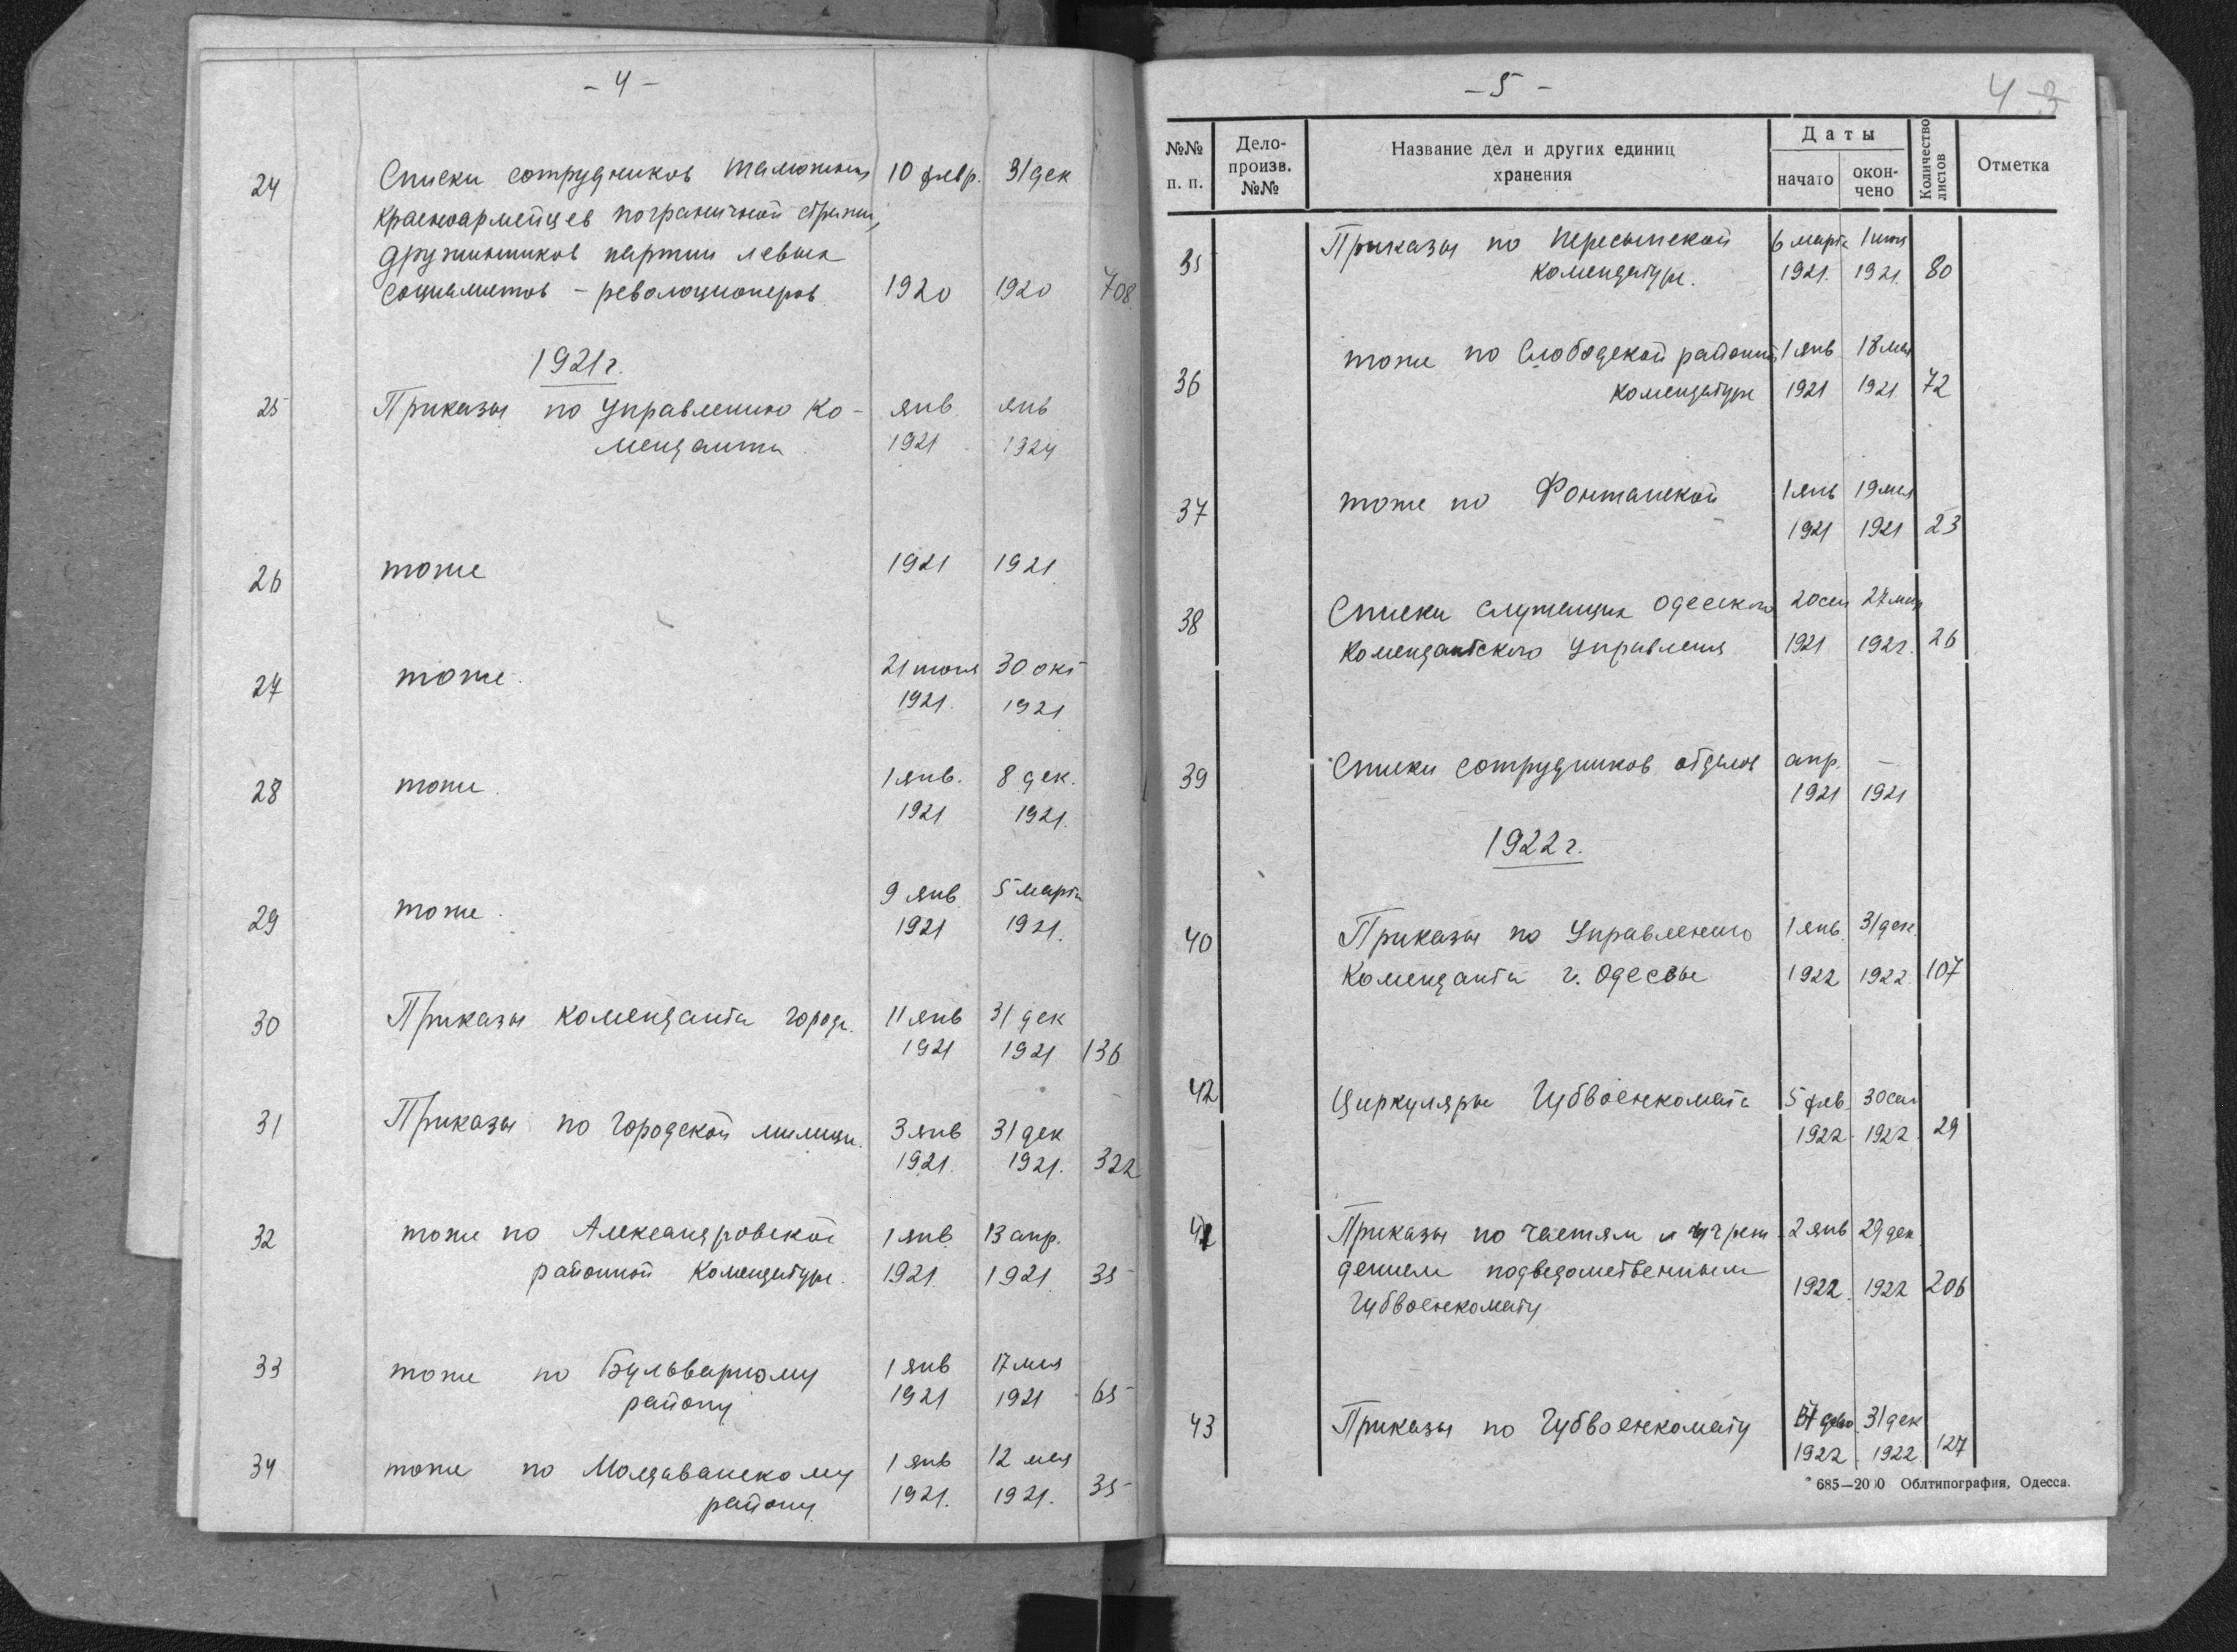 - 4 -
24 Списки сотрудников таможни, 10 февр. 31 дек
красноармейцев пограничной стражи,
дружинников партии левых
социалистов - революционеров 1920 1920 708
1921 г.
25 Приказы по Управлению Ко- янв. янв
менданта. 1921 1924
26 тоже 1921 1921
27 тоже. 21 июня 30 окт
1921. 1921
28 тоже. 1 янв. 8 дек.
1921 1921.
29 тоже. 9 янв 5 марта
1921 1921.
30 Приказы коменданта города. 11 янв 31 дек
1921 1921 136
31 Приказы по городской милиции. 3 янв 31 дек
1921. 1921. 322
32 тоже по Александровской 1 янв 13 апр.
районной комендатуре. 1921. 1921 35
33 тоже по Бульварному 1 янв 17 мая
району 1921 1921 65
34 тоже по Молдаванскому 1 янв 12 мая
району. 1921. 1921. 35
- 5 -
4
№№ п. п.
Дело-произв. №№
Название дел и других единиц хранения
Даты
начато
окон-чено
Количество листов
Отметка
35 Приказы по Пересыпской 6 марта 1
комендатуре. 1921. 1921. 80
36 тоже по Слободской районной 1 янв 18 мая
комендатуре 1921 1921. 72
37 тоже по Фонтанской 1 янв 19 мая
1921 1921 23
38 Списки служащих Одесского 20 сен 27 мая
Комендантского Управления 1921 1922. 26
39 Списки сотрудников отделов апр. —
1921 1921
1922 г.
40 Приказы по Управлению 1 янв. 31 дек.
Коменданта г. Одессы 1922 1922. 107
42 Циркуляры Губвоенкомата 5 фев. 30 сен
1922. 1922. 29
Приказы по частям и учреж- 2 янв 29 дек.
дениям подведомственным 1922. 1922 206
Губвоенкомату
43 Приказы по Губвоенкомату 31 дек
1922. 1922. 127
685—2000 Облтипография, Одесса.